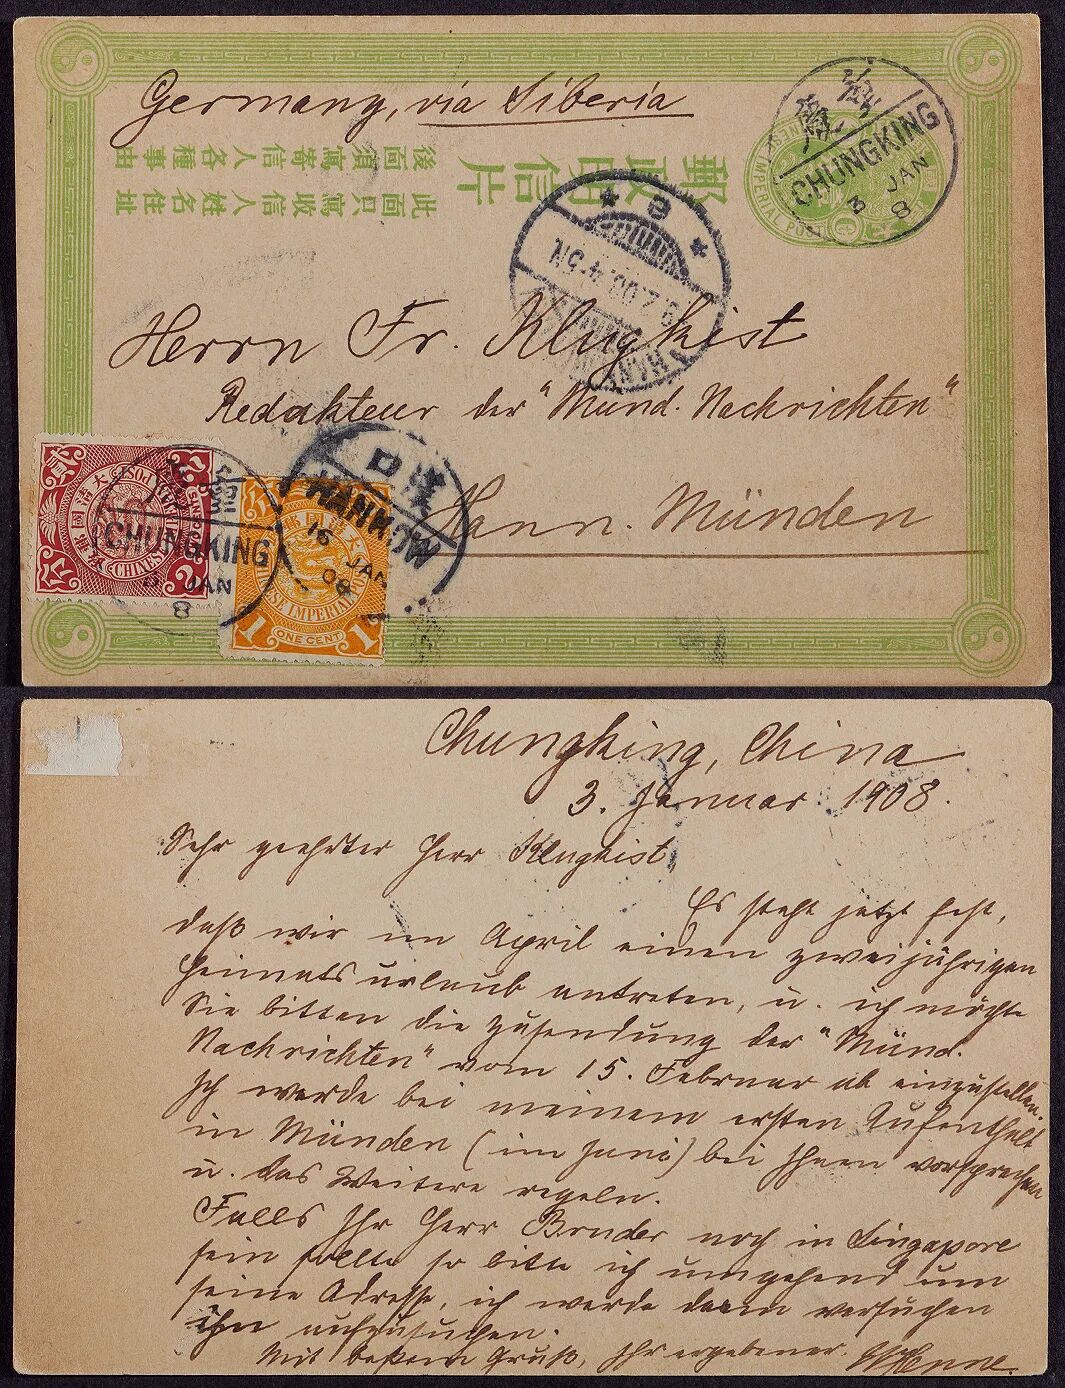 Germany, via Siberia
郵政明信片
此面只寫收信人姓名住址
後面須寫寄信人各種事由
CHINESE IMPERIAL POST
重慶
CHUNGKING
3 JAN
8
* e *
9.2.08.4-5N.
HANN.
Herrn Fr. Klugkist
Redakteur der "Münd. Nachrichten"
Hann. Münden
2 CHINESE IMPERIAL POST 2
大清國郵政
CHUNGKING
3 JAN
8
漢口
HANKOW
16 JAN
08
大清國郵政
CHINESE IMPERIAL POST
1 ONE CENT 1
Chungking, China
3. Januar 1908.
Sehr geehrter Herr Klugkist,
Es steht jetzt fest,
daß wir im April einen zweijährigen
Heimatsurlaub antreten, u. ich möchte
Sie bitten die Zusendung der "Münd.
Nachrichten" vom 15. Februar ab einzustellen.
Ich werde bei meinem ersten Aufenthalt
in Münden (im Juni) bei Ihnen vorsprechen
u. das Weitere regeln.
Falls Ihr Herr Bruder noch in Singapore
sein sollte so bitte ich umgehend um
seine Adresse, ich werde dann versuchen
ihn aufzusuchen.
Mit bestem Gruß, Ihr ergebener
WHenne.